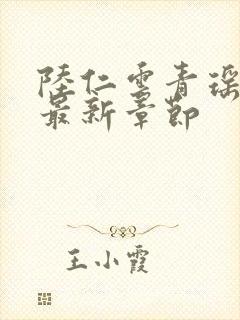 陸仁雲青瑶
最新章節
王小霞